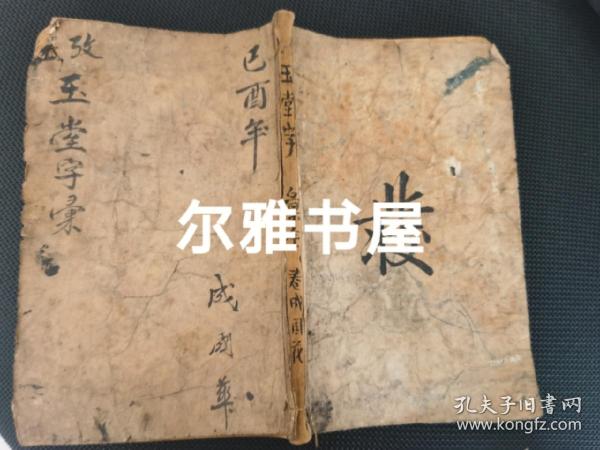 攷正
玉堂字彙
己酉年
成國華
玉堂字
卷成國華
尔雅书屋
孔夫子旧书网
www.kongfz.com